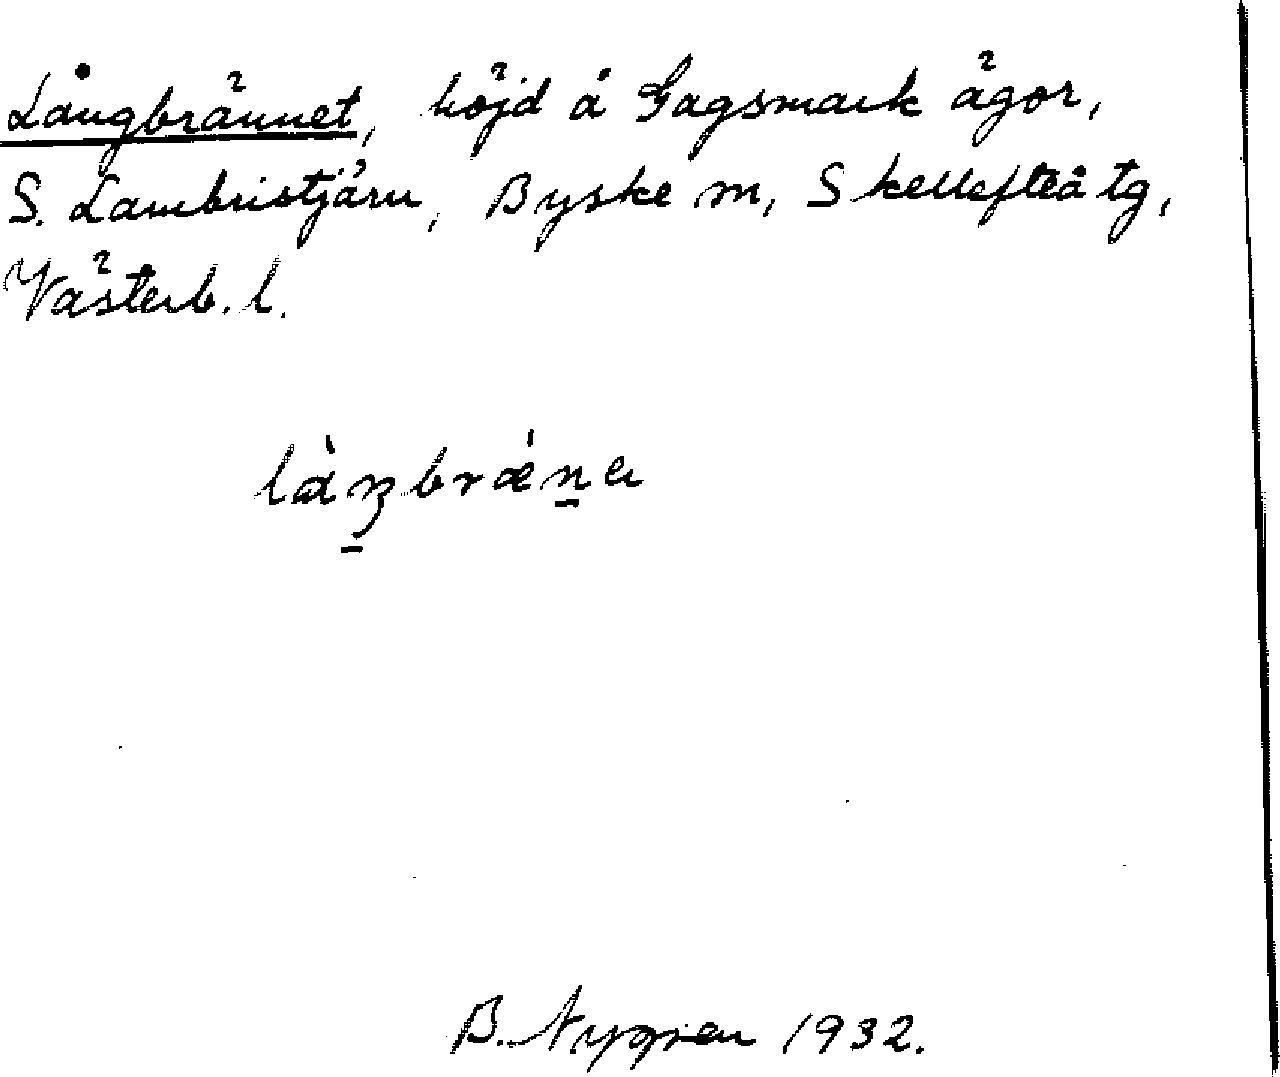 Långbrännet, höjd å Gagsmark ägor,
S. Lambristjärn, Byske sn, Skellefteå tg,
Västerb. l.
là̱ŋbrǽṉa
B. Nygren 1932.